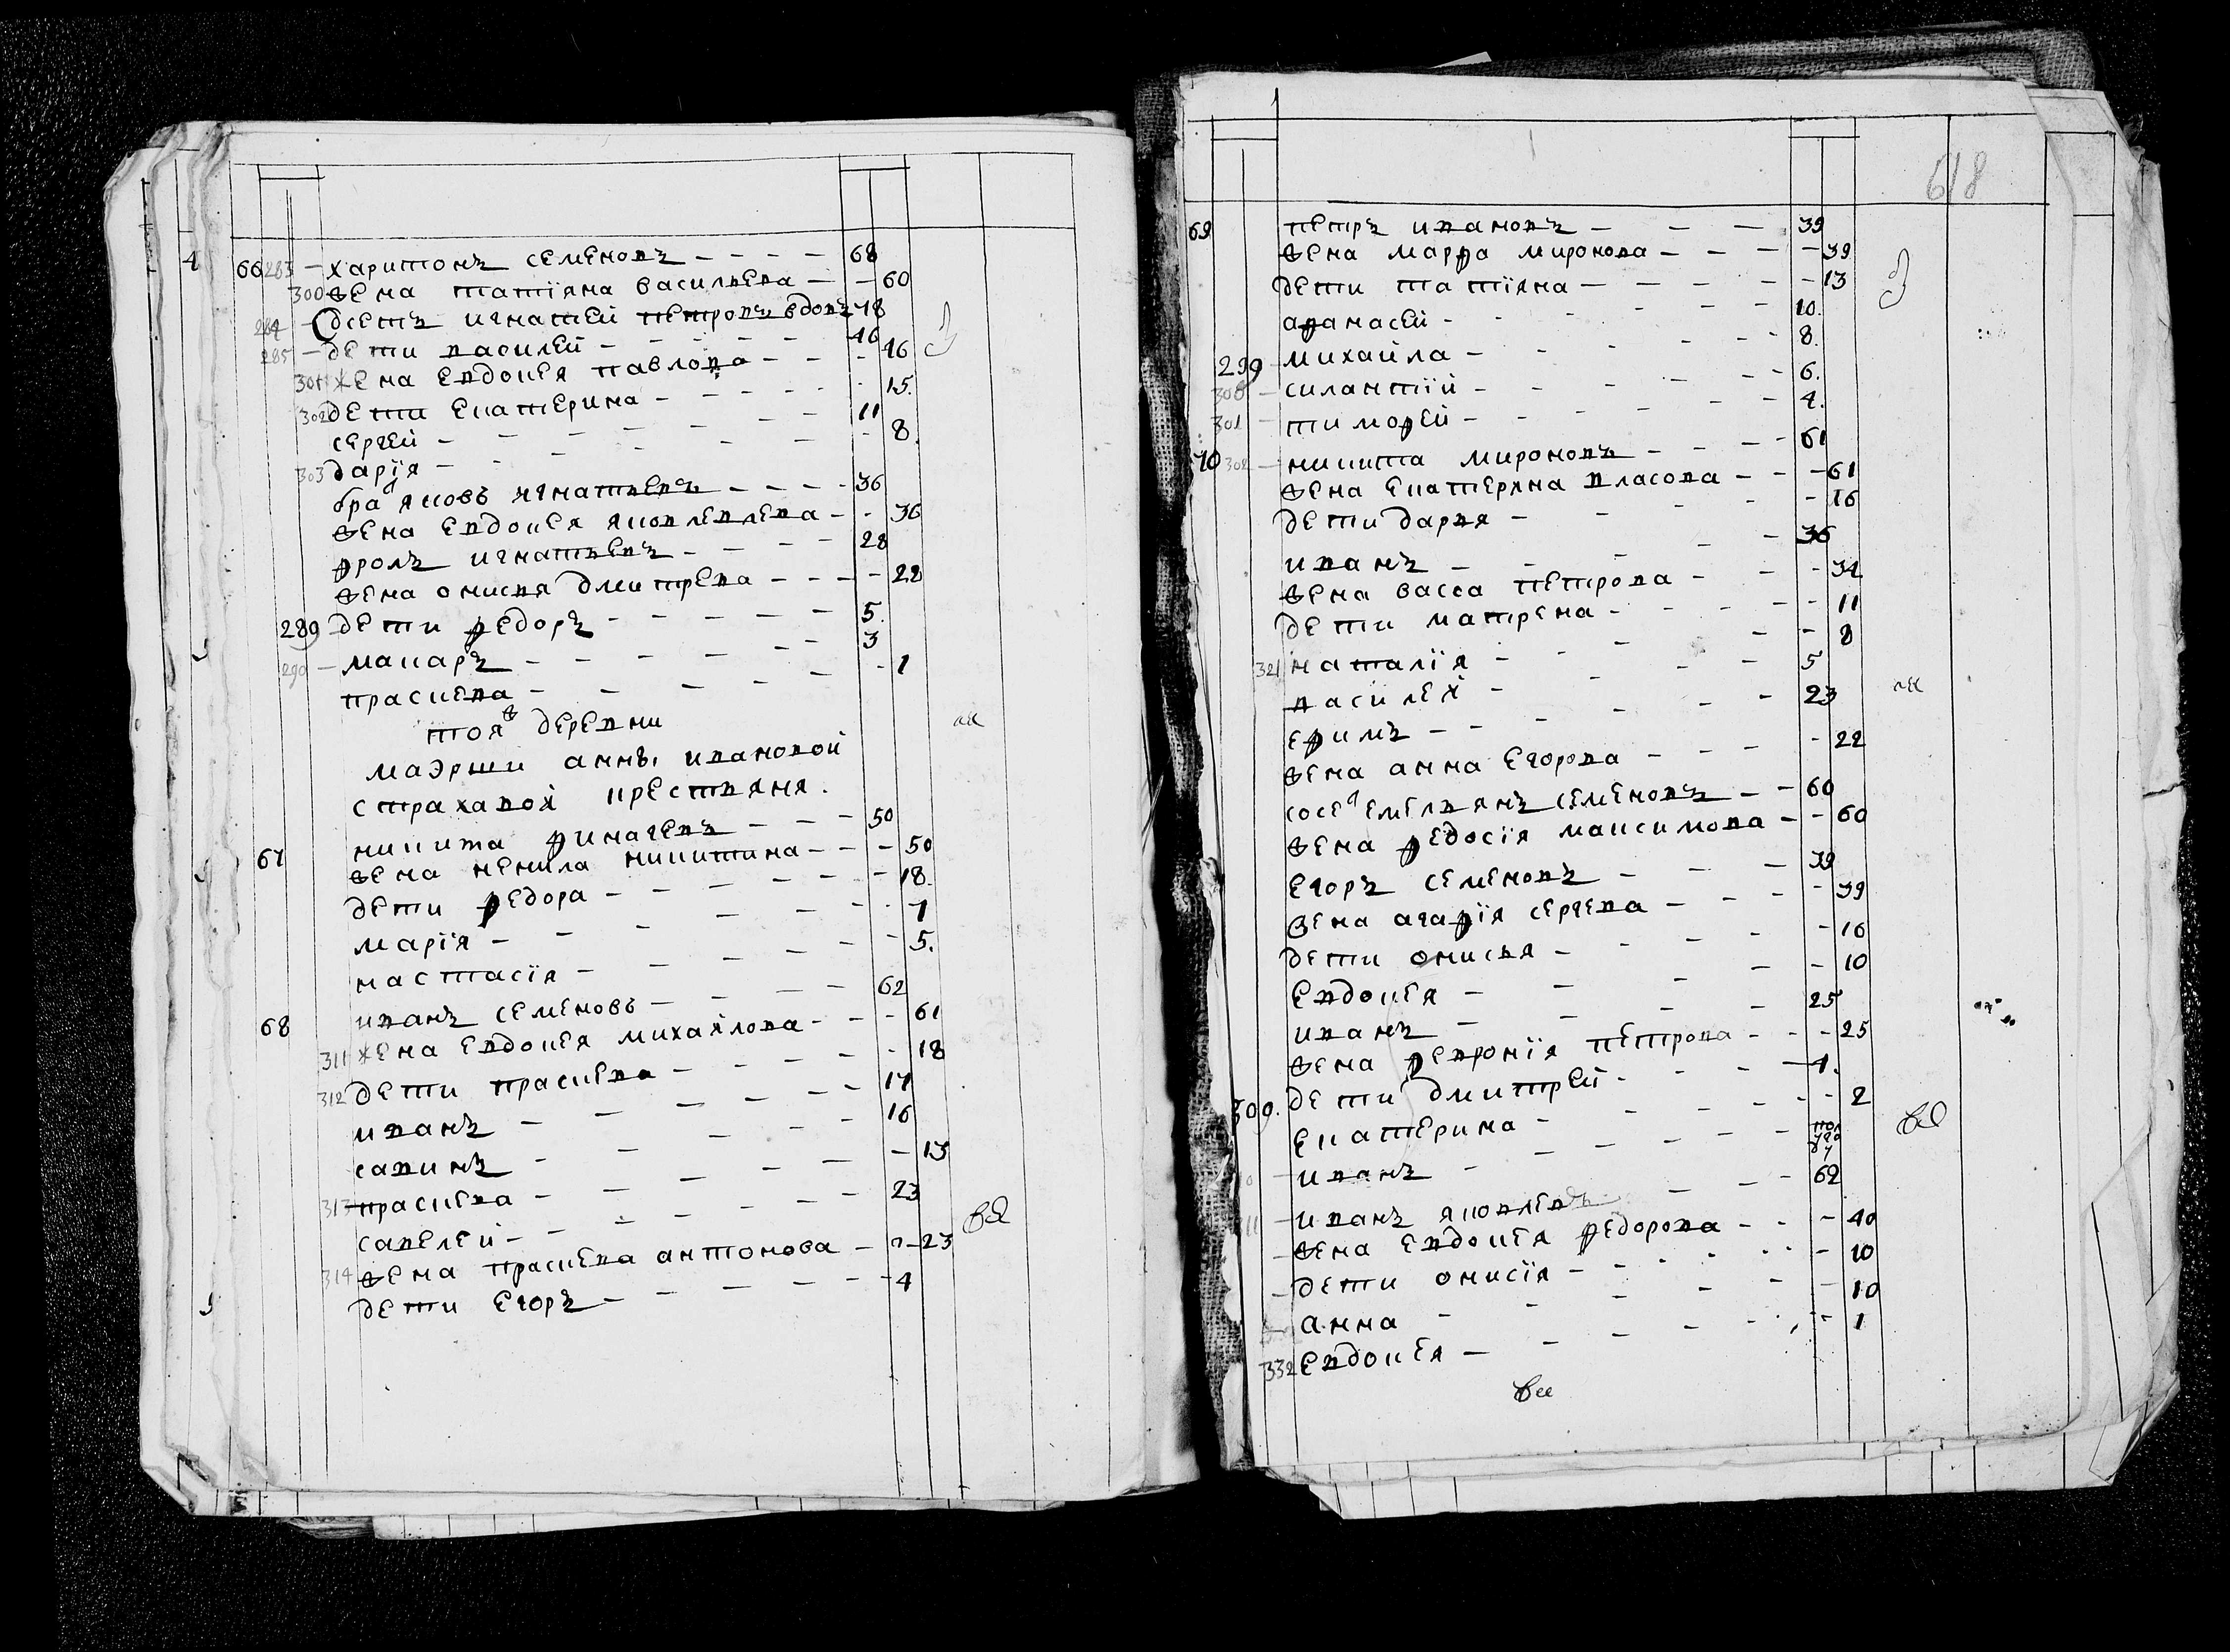 4 66 283 – харитонъ семеновъ – – – – 68
300 жена татїяна васильева – – 60
284 – сосѣтъ игнатей петровъ вдовъ 78
285 – дети василей – – – – 46
301 жена евдокея павлова – – – 46
302 дети екатерина – – – – 15.
сергей – – – – 11
303 дарїя – – – – 8.
бра яковъ игнатьевъ – – – – 36
жена евдокея яковлевлева – – 36
фролъ игнатьевъ – – – – 28
жена онисья дмитрева – – – – 28
289 дети федоръ – – – – 5.
290 – макаръ – – – – 3
прасиева – – – – 1
тояж деревни
маэрши анны ивановой
страхавой крестьяня.
67 никита фимагевъ – – – 50
жена ненила никитина – – – 50
дети федора – – – – 18.
марїя – – – – 7
настасїя – – – – 5.
68 иванъ семеновъ – – – – 62
311 жена евдокея михайлова – – – 61
312 дети прасиева – – – – 18
иванъ – – – – 17
савинъ – – – – 16
313 прасиева – – – – 13
савелей – – – – 23
314 жена прасиева антонова – – 23
дети егоръ – – – – 4
618
69 петръ ивановъ – – – 39
жена марфа миронова – – – – 39
дети татїяна – – – – 13
афанасей – – – – 10.
299 михайла – – – – 8.
300 – силантїй – – – – 6.
301 – тимофей – – – – 4.
70 302 – никита мироновъ – – – 61
жена екатеряна власова – – – 61
дети дарья – – – 16
иванъ – – – – 36
жена васса петрова – – – 34
дети матрена – – – – 11
321 наталїя – – – – 8
василей – – – – 5
ефимъ – – – – 23
жена анна егорова – – – – 22
сосед емельянъ семеновъ – – 60
жена федосїя максимова – – 60
егоръ семеновъ – – – 39
жена агафїя сергева – – – – 39
дети онисья – – – – 16
евдокея – – – – 10
иванъ – – – – 25
жена февронїя петрова – – – 25
309. дети дмитрей – – – – 4.
екатерина – – – – 2
– иванъ – – – – пол года
– иванъ яковлевъ – – 62
– жена евдокея федорова – – – 40
– дети онисїя – – – – 10
анна – – – – 10
332 евдокея – – – – 1